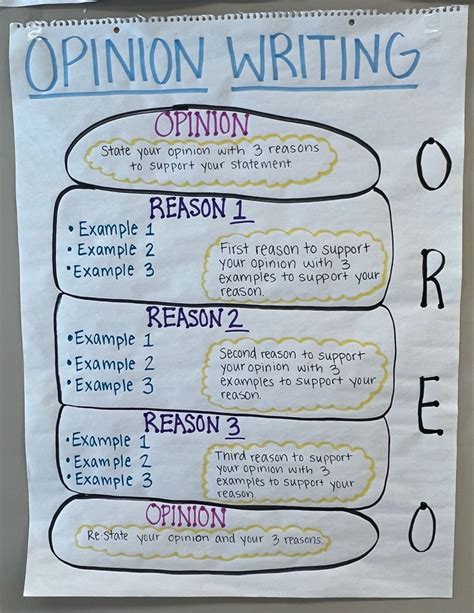 OPINION WRITING
OPINION
State your opinion with 3 reasons
to support your statement.
REASON 1
• Example 1
• Example 2
• Example 3
First reason to support
your opinion with 3
examples to support your
reason.
REASON 2
• Example 1
• Example 2
• Example 3
Second reason to support
your opinion with 3
examples to support your
reason.
REASON 3
• Example 1
• Example 2
• Example 3
Third reason to support
your opinion with 3
examples to support your
reason.
OPINION
Re state your opinion and your 3 reasons.
O
R
E
O